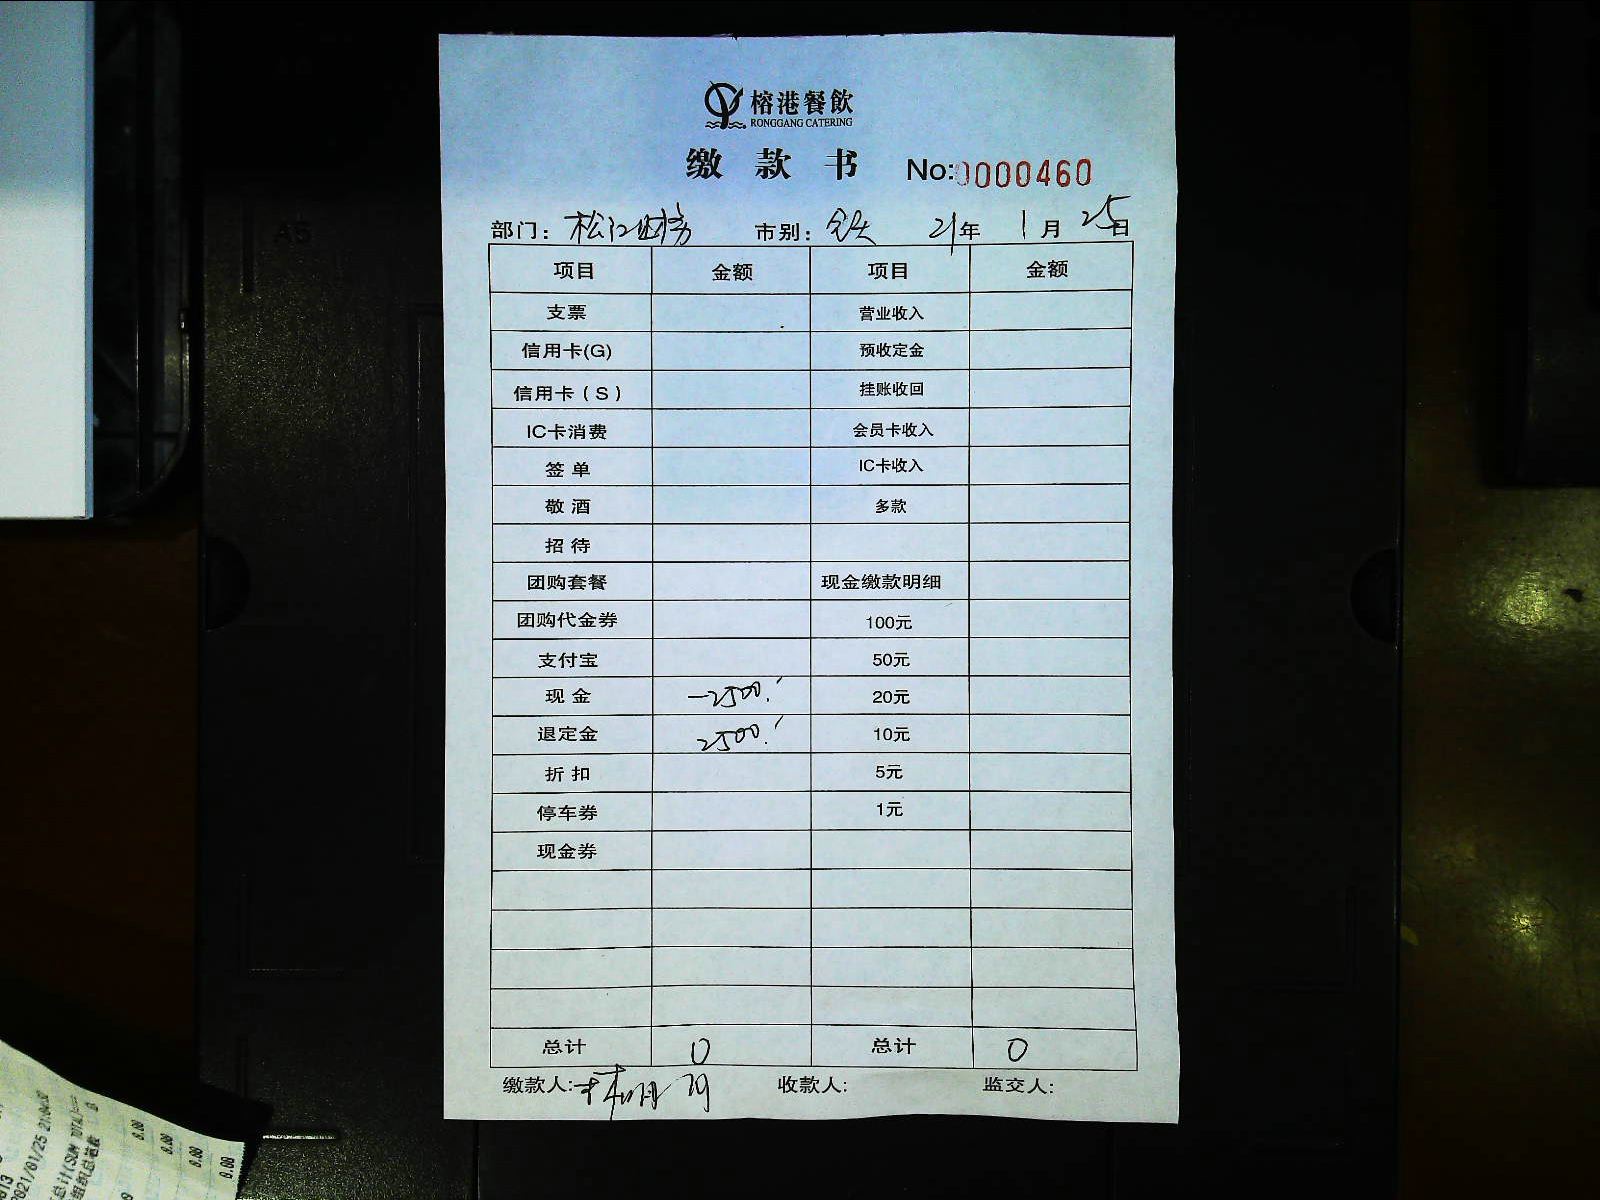 榕港餐飲
RONGGANG CATERING
缴款书 No:0000460
部门: 松江财务 市别: 全天 21年 1月 25日
项目 金额 项目 金额
支票 营业收入
信用卡(G) 预收定金
信用卡(S) 挂账收回
IC卡消费 会员卡收入
签单 IC卡收入
敬酒 多款
招待
团购套餐 现金缴款明细
团购代金券 100元
支付宝 50元
现金 -2500.- 20元
退定金 2500.- 10元
折扣 5元
停车券 1元
现金券
总计 0 总计 0
缴款人: 收款人: 监交人:
A5
2021/01/25 21:04:32
总计(SUM TOTAL)
0.00
0.00
0.00
0.00